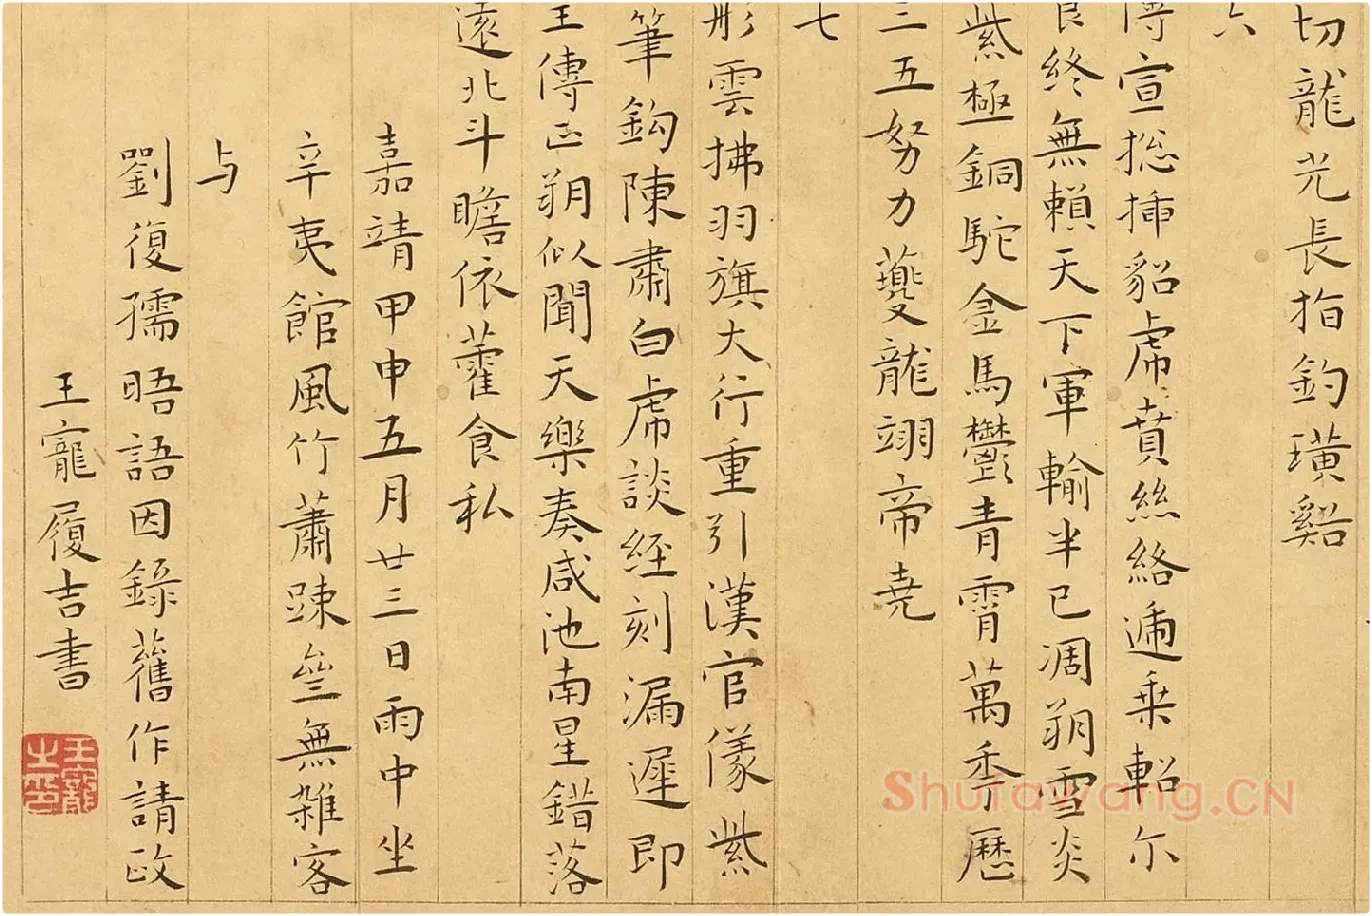 切龍光長指鈞璜谿
六
傳宣捴揷貂虎賁絲絡逓乗軺尓
食終無賴天下軍輸半已凋朔雪炎
紫極銅駝金馬鬱青霄萬秊歴
三五努力夔龍翊帝堯
七
彤雲拂羽旗大行重引漢官儀紫
筆鈎陳肅白虎談経刻漏遲即
王傳正朔似聞天樂奏咸池南星錯落
遠北斗瞻依藿食私
嘉靖甲申五月廿三日雨中坐
辛夷館風竹蕭踈並無雜客
与
劉復孺晤語因錄舊作請政
王寵履吉書
王寵之印
Shufawang.CN